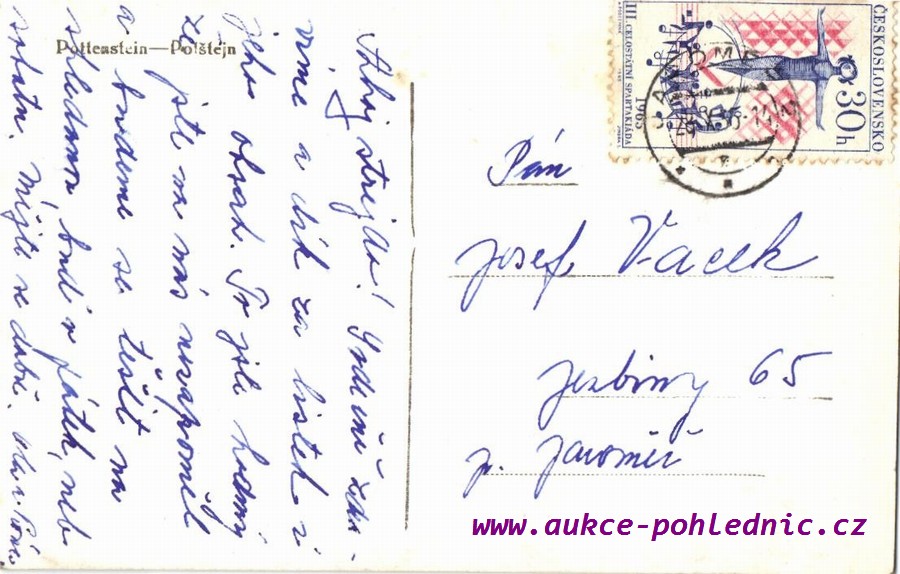 Pottenstein—Potštejn
Ahoj strejdo! Srdečně zdra-
víme a dík za lístek i
jeho obsah. To jste hodný
že jste na nás nezapoměl
a budeme se těšit na
shledanou, buď v pátek, neb
sobotu. Mějte se dobře.
ČESKOSLOVENSKO
30h
III. CELOSTÁTNÍ SPARTAKIÁDA
1965
Pán
Josef Vacek
Jezbiny 65
p. Jaroměř
www.aukce-pohlednic.cz